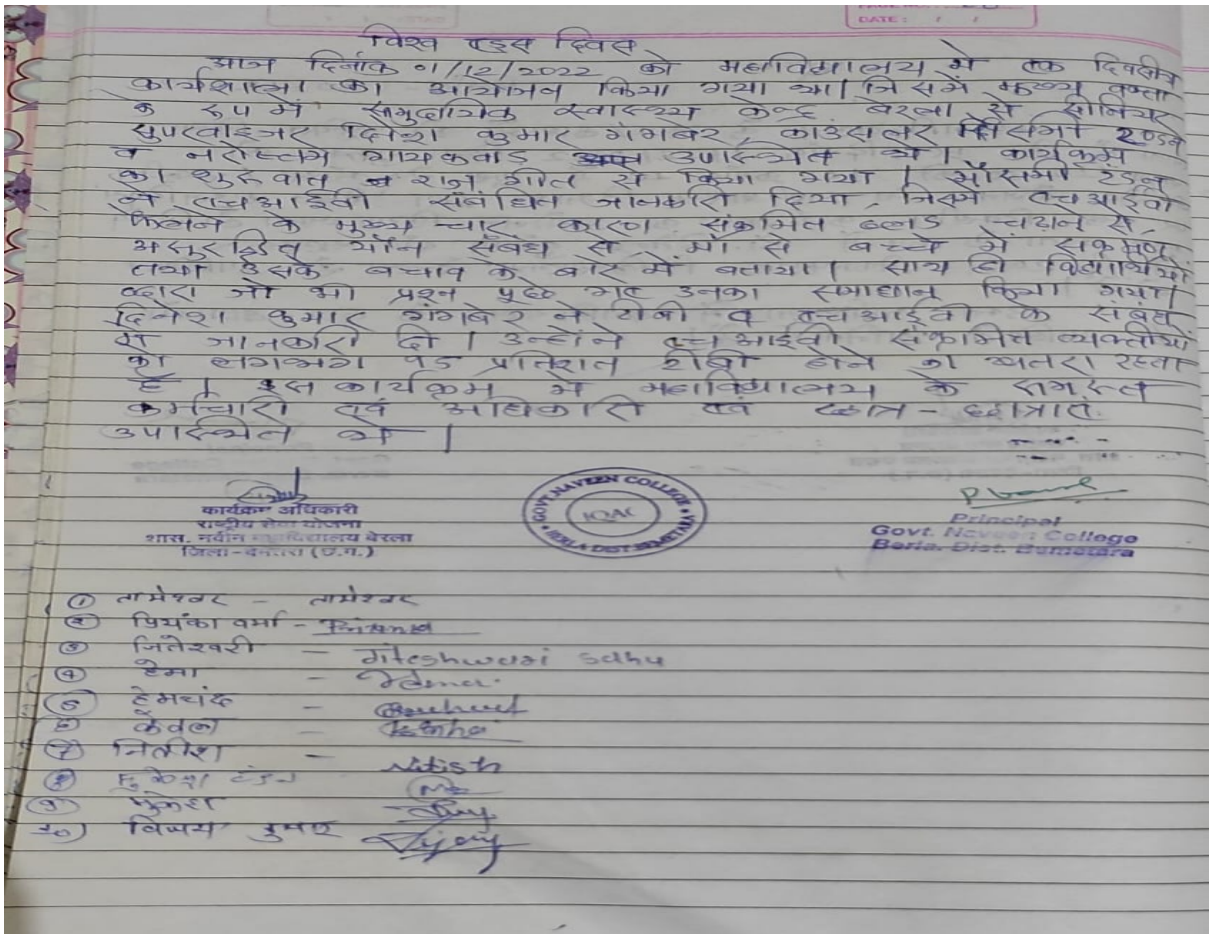 DATE: / /
विश्व एड्स दिवस
आज दिनांक 01/12/2022 को महाविद्यालय में एक दिवसीय
कार्यशाला का आयोजन किया गया था। जिसमें मुख्य वक्ता
के रूप में समुदायिक स्वास्थ्य केन्द्र बेरला से सीनियर
सुपरवाइजर दिनेश कुमार गंगबेर, काउंसलर
व नरोत्तम गायकवाड उपास्थित थे। कार्यक्रम
का शुरुवात रा.से.यो. गीत से किया गया। टंडन
ने एचआईवी संबंधित जानकारी दिया, जिसमें एचआईवी
फैलने के मुख्य चार कारण संक्रमित ब्लड चढ़ाने से,
असुरक्षित यौन संबंध से, माँ से बच्चे में संक्रमण
तथा उसके बचाव के बारे में बताया। साथ ही विद्यार्थियों
द्वारा जो भी प्रश्न पूछे गए उनका समाधान किया गया।
दिनेश कुमार गंगबेर ने टीबी व एचआईवी के संबंध
में जानकारी दी। उन्होंने एचआईवी संक्रमित व्यक्तियों
को लगभग प्रतिशत टीबी होने का खतरा रहता
है। इस कार्यक्रम में महाविद्यालय के समस्त
कर्मचारी एवं अधिकारी एवं छात्र-छात्राएं
उपास्थित थे।
कार्यक्रम अधिकारी
राष्ट्रीय सेवा योजना
शास. नवीन महाविद्यालय बेरला
जिला-बेमेतरा (छ.ग.)
GOVT. NAVEEN COLLEGE
IQAC
BERLA DIST BEMETARA
Principal
Govt. Naveen College
Berla, Dist. Bemetara
① तामेश्वर - तामेश्वर
② प्रियंका वर्मा - Priyanka
③ जितेश्वरी - Jiteshwari Sahu
④ हेमा - Hema
⑤ हेमचंद -
6 केवल -
⑦ नितीश - Nitish
⑧ टंडन
⑨ मुकेश
10) विजय कुमार Vijay